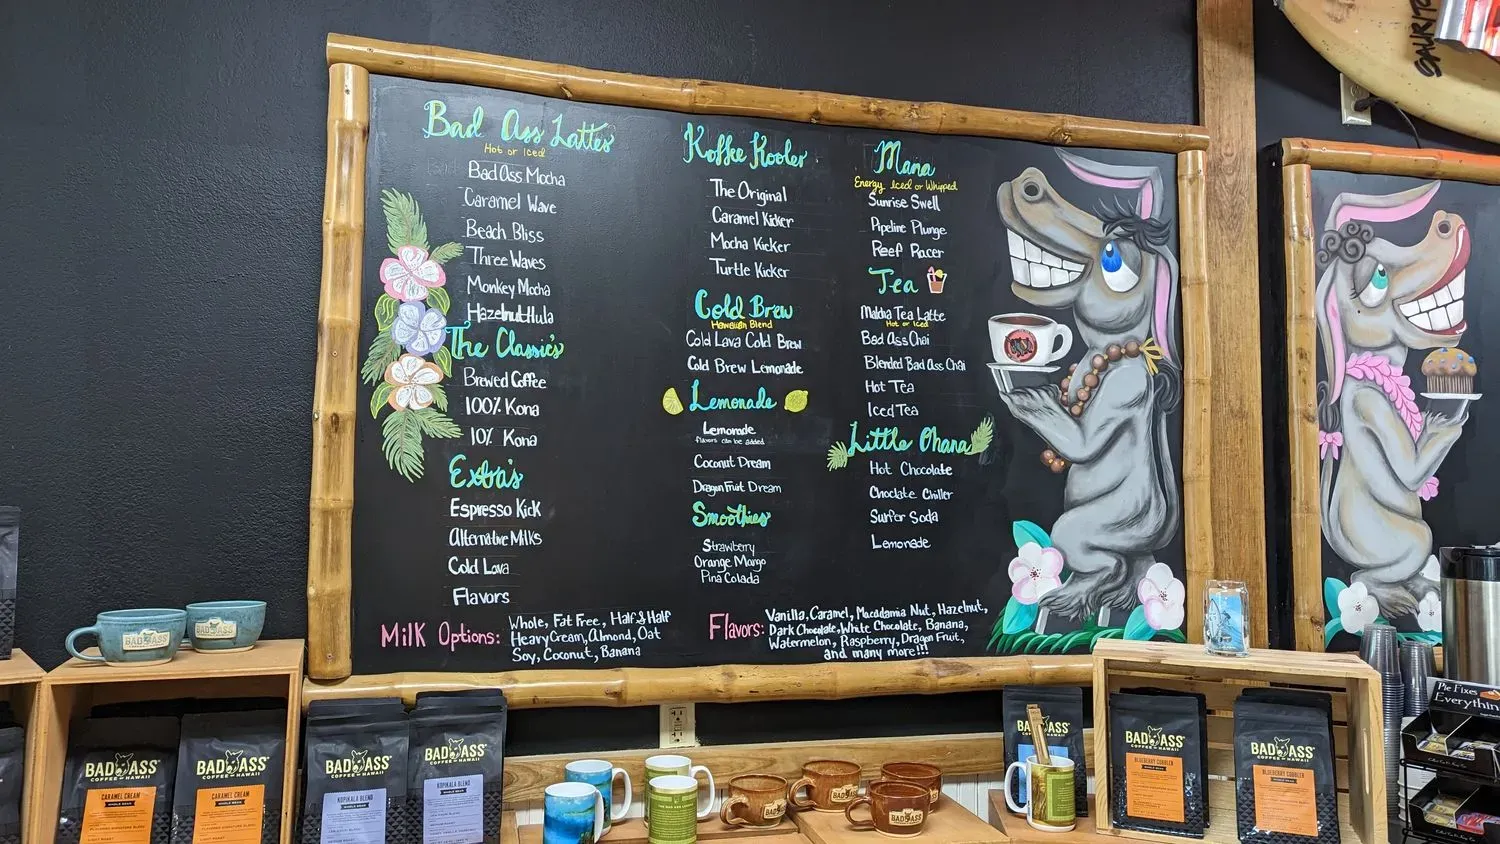 Bad Ass Lattes
Hot or Iced
Bad Ass Mocha
Caramel Wave
Beach Bliss
Three Waves
Monkey Mocha
Hazelnut Hula
The Classic's
Brewed Coffee
100% Kona
10% Kona
Extra's
Espresso Kick
Alternative Milks
Cold Lava
Flavors
Koffee Kooler
The Original
Caramel Kicker
Mocha Kicker
Turtle Kicker
Cold Brew
Hawaiian Blend
Cold Lava Cold Brew
Cold Brew Lemonade
Lemonade
Lemonade
flavors can be added
Coconut Dream
Dragon Fruit Dream
Smoothies
Strawberry
Orange Mango
Pina Colada
Mana
Energy Iced or Whipped
Sunrise Swell
Pipeline Plunge
Reef Racer
Tea
Matcha Tea Latte
Hot or Iced
Bad Ass Chai
Blended Bad Ass Chai
Hot Tea
Iced Tea
Little Ohana
Hot Chocolate
Choclate Chiller
Surfer Soda
Lemonade
Milk Options: Whole, Fat Free, Half & Half
Heavy Cream, Almond, Oat
Soy, Coconut, Banana
Flavors: Vanilla, Caramel, Macadamia Nut, Hazelnut,
Dark Chocolate, White Chocolate, Banana,
Watermelon, Raspberry, Dragon Fruit,
and many more!!!
BAD ASS
BAD ASS
BAD ASS
COFFEE OF HAWAII
CARAMEL CREAM
WHOLE BEAN
BAD ASS
COFFEE OF HAWAII
CARAMEL CREAM
WHOLE BEAN
BAD ASS
COFFEE OF HAWAII
KOPIKALA BLEND
WHOLE BEAN
BAD ASS
COFFEE OF HAWAII
KOPIKALA BLEND
WHOLE BEAN
BAD ASS
BAD ASS
COFFEE OF HAWAII
BLUEBERRY COBBLER
WHOLE BEAN
BAD ASS
COFFEE OF HAWAII
BLUEBERRY COBBLER
WHOLE BEAN
BAD ASS
Pie Fixes
Everything